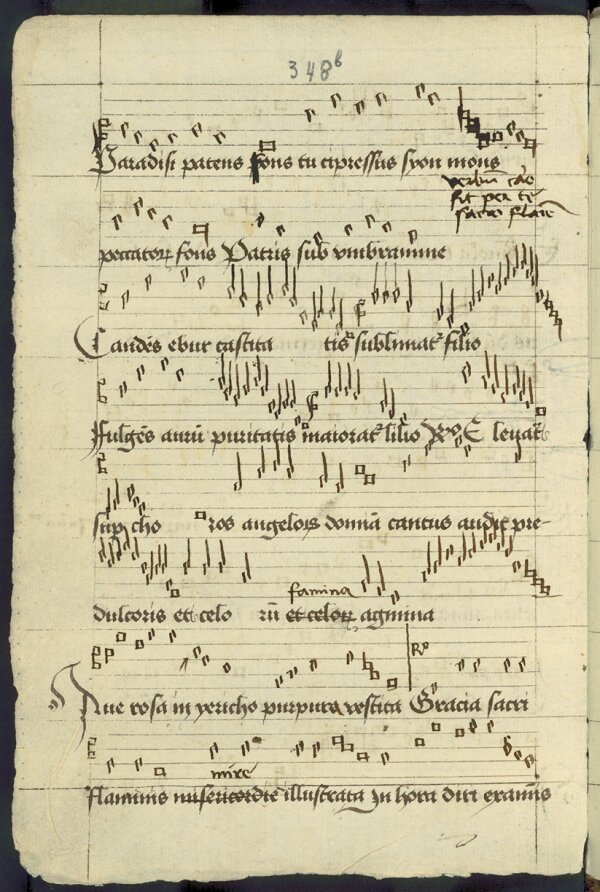 348b
Paradisi patens fons tu cipressus syon mons
verbum caro
fit per te
sacro flamine
peccatorum fons Patris sub umbramine
Candes ebur castita tis sublimat filio
ffulges aurum puritatis maiorat lilio Ro E levat
sup cho ros angelorum donnam cantus audit pre-
dulcoris et celo rum et celorum agmina
famina
Ro
Aue rosa in yericho purpura vestita Gracia sacri
mire
flaminis misericordie illustrata In hora diri examinis